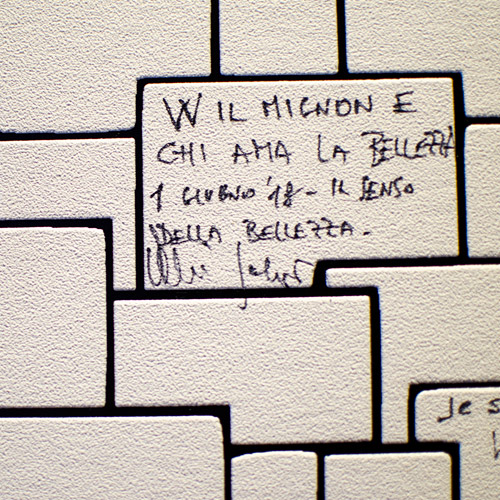 W IL MIGNON E
CHI AMA LA BELLEZZA
1 GIUGNO '18 - IL SENSO
DELLA BELLEZZA.
Je s